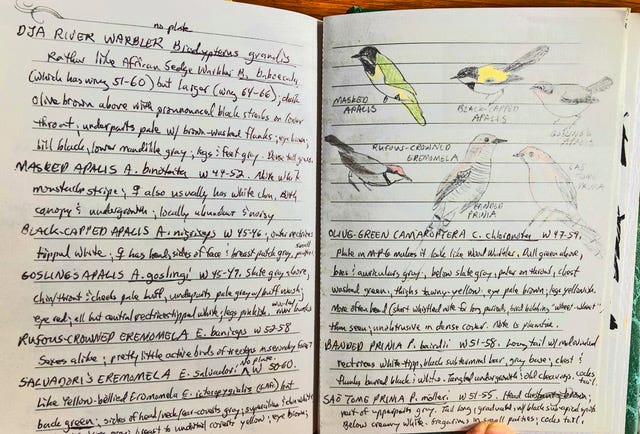 no plate
DJA RIVER WARBLER Bradypterus grandis
Rather like African Sedge Warbler B. baboecala
(which has wing 51-60) but larger (wing 64-66); dark
olive brown above with pronounced black streaks on lower
throat; underparts pale w/ brown-washed flanks; eye brown;
bill black, lower mandible gray; legs & feet gray. Dense tall grass.
MASKED APALIS A. binotata W 44-52. Note white
moustache stripe; ♀ also usually has white chin. Both
canopy & undergrowth; locally abundant & noisy
BLACK-CAPPED APALIS A. nigriceps W 45-46; outer rectrices
tipped white; ♀ has head, sides of face & breast patch gray, small
GOSLING'S APALIS A. goslingi W 45-49. Slate gray above,
chin/throat & cheeks pale buff, underparts pale gray w/ buff wash;
eye red; all but central rectrices tipped white; legs pinkish.
RUFOUS-CROWNED EREMOMELA E. badiceps W 52-58
Sexes alike; pretty little active birds of treetops in secondary forest
no plate
SALVADORI'S EREMOMELA E. salvadori W 50-60.
Like Yellow-bellied Eremomela E. icteropygialis but
back green; sides of head/neck/ear-coverts gray; supercilium & chin white
breast to undertail coverts yellow; eye brown;
MASKED APALIS
BLACK-CAPPED APALIS
GOSLING'S APALIS
RUFOUS-CROWNED EREMOMELA
BANDED PRINIA
SAO TOME PRINIA
OLIVE-GREEN CAMAROPTERA C. chloronota W 47-59.
Plate in MPG makes it look like Wood Warbler. Dull green above,
lores & auriculars gray; below slate gray, paler on throat, chest
washed green, thighs tawny-yellow; eye pale brown; legs yellowish.
More often heard (short whistled note for long periods, trail bobbing
than seen; unobtrusive in dense cover. Note is plaintive.
BANDED PRINIA P. bairdii W 51-58. Long tail w/
rectrices white-tipp, black subterminal bar, gray base; chest &
flanks barred black & white. Tangled undergrowth & old clearings, cocks tail.
SAÕ TOME PRINIA P. molleri. W 51-55. Head brown;
rest of upperparts gray. Tail long, graduated, w/ black subapical spots
Below creamy white. Gregarious in small parties; cocks tail.